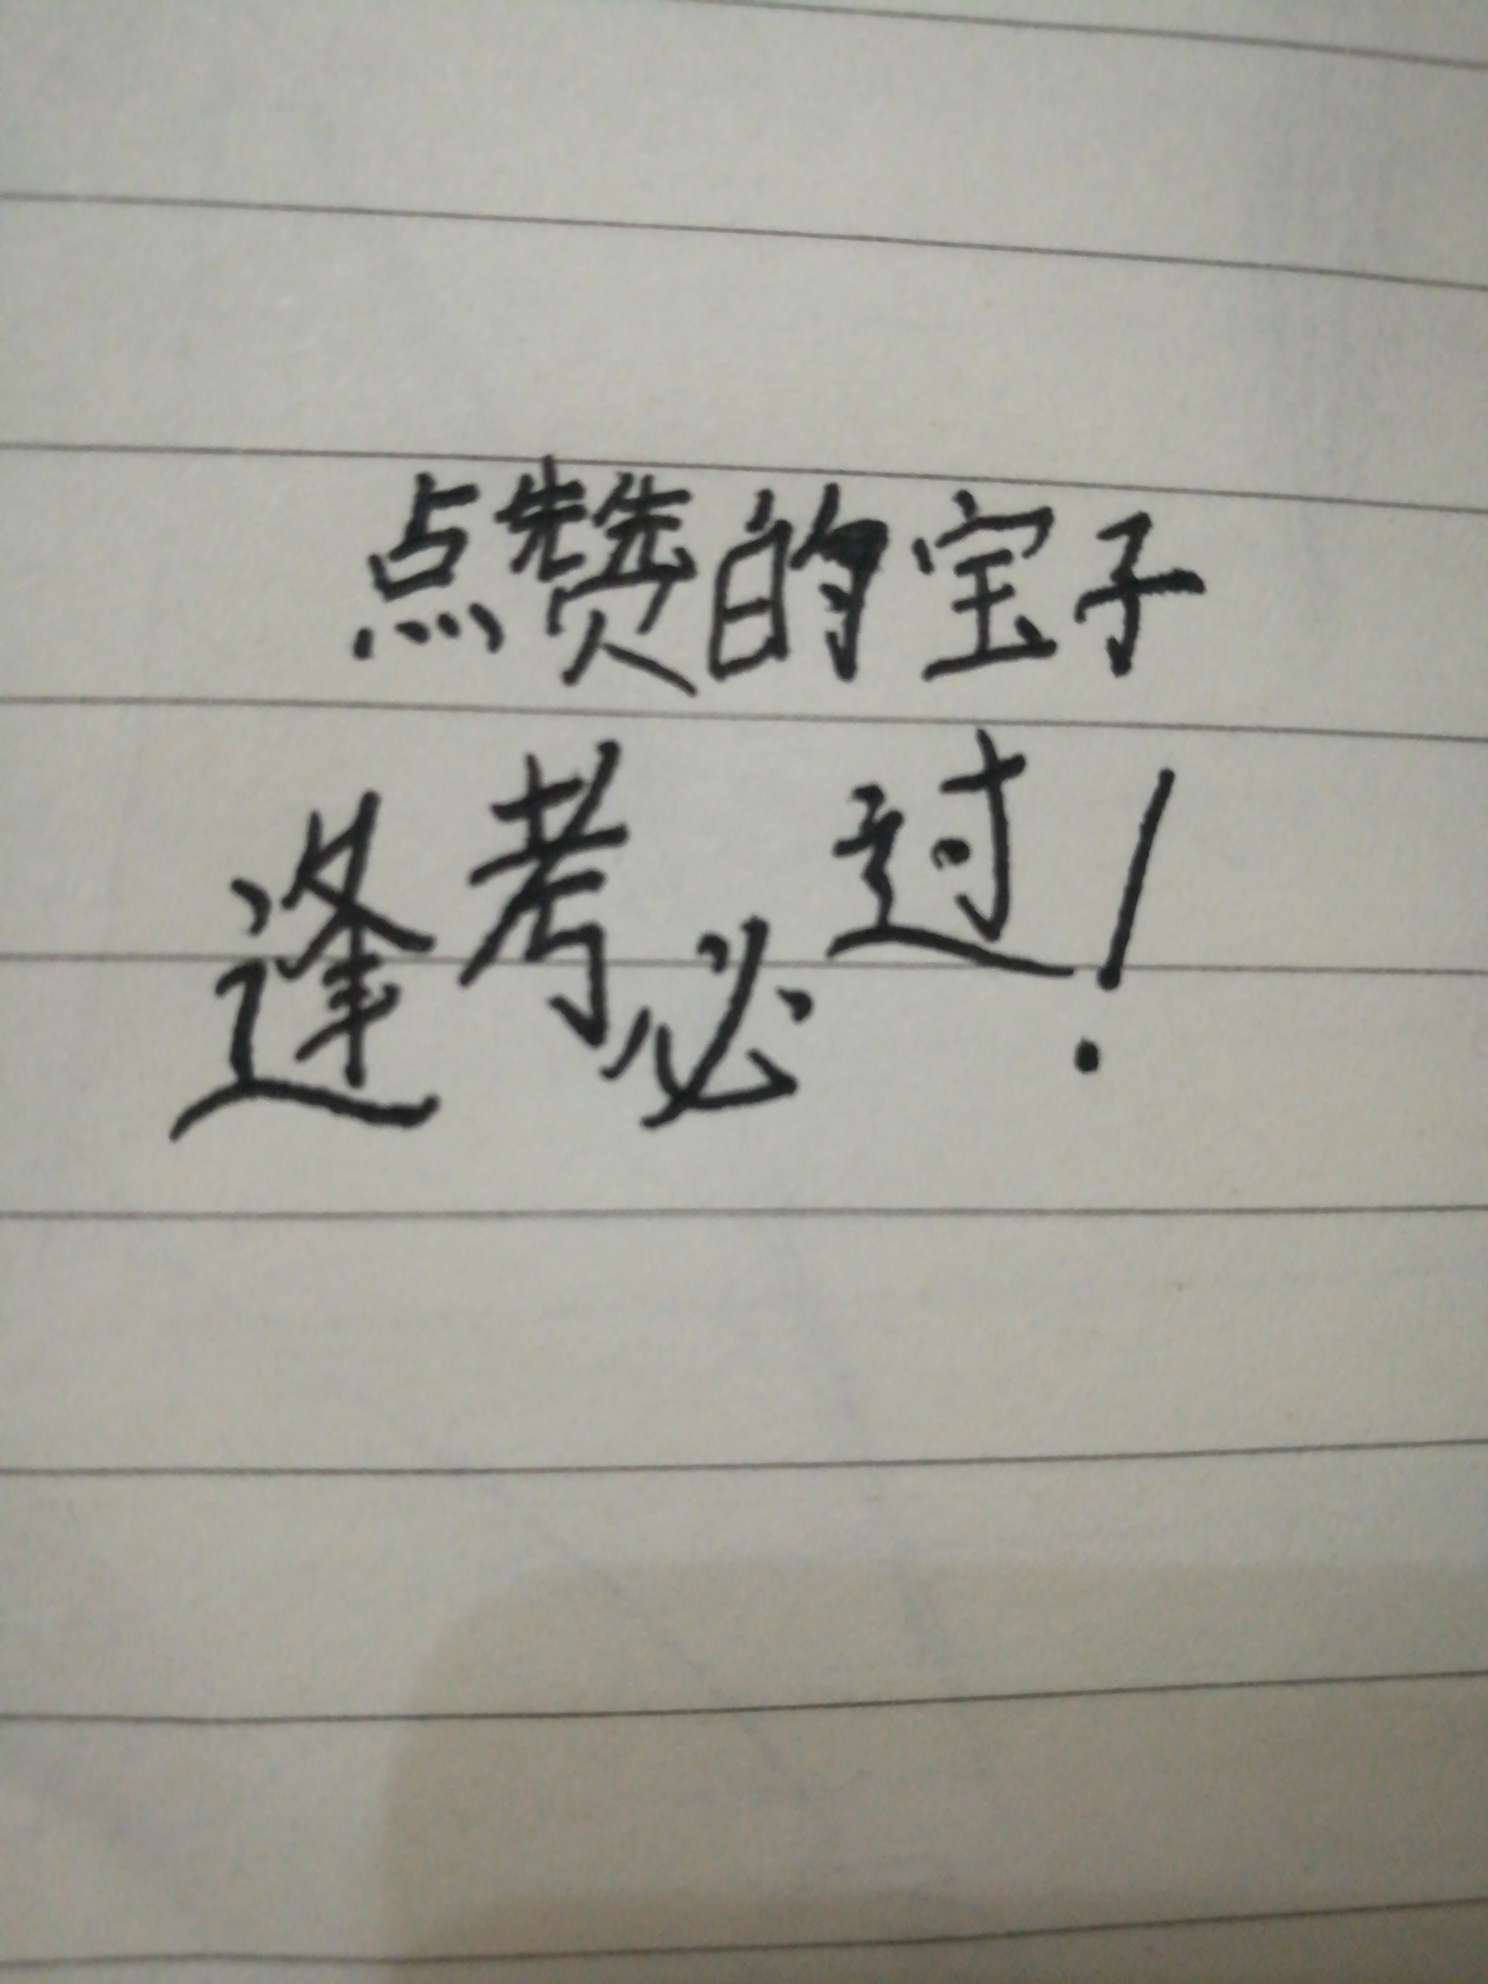 点赞的宝子
逢考必过！